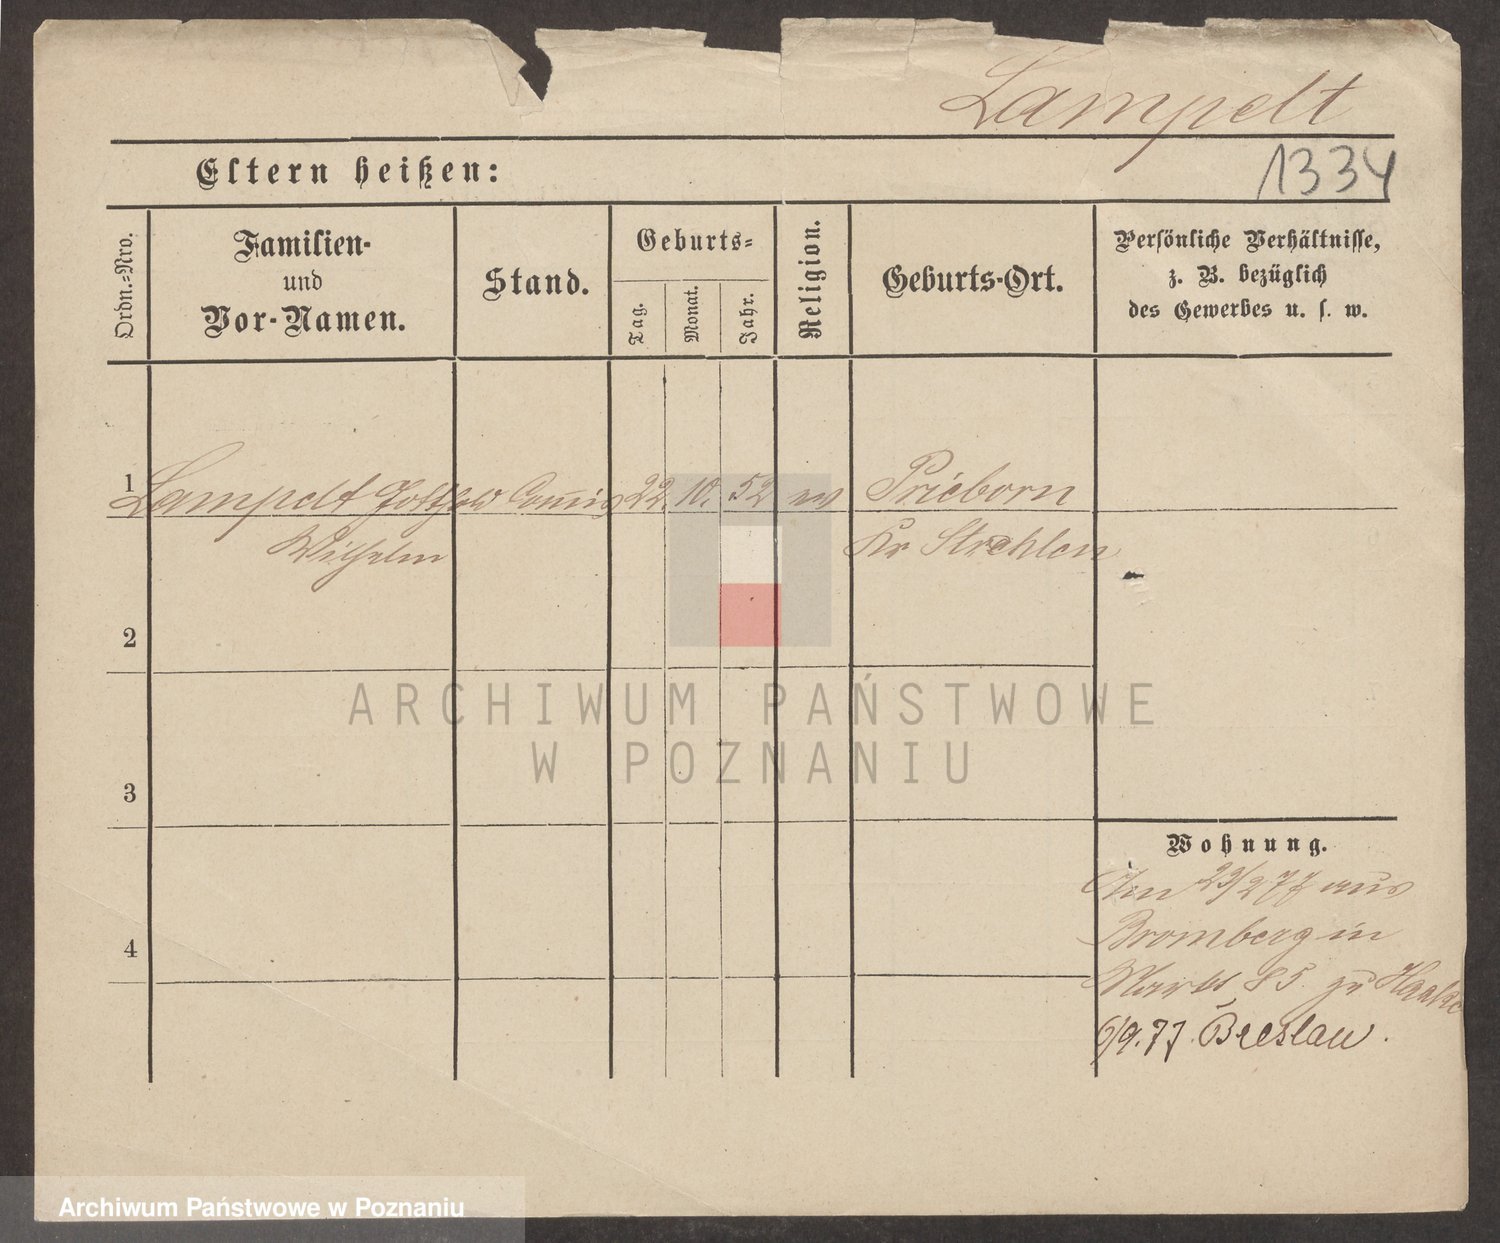 Lampelt
1334
Eltern heißen:
Ordn.-Nro.
Familien-
und
Vor-Namen.
Stand.
Geburts-
Tag.
Monat.
Jahr.
Religion.
Geburts-Ort.
Persönliche Verhältnisse,
z. B. bezüglich
des Gewerbes u. s. w.
1
Lampelt Gotthold Commis 22. 10. 52 ev Prieborn
Wilhelm Kr Strehlen
2
ARCHIWUM PAŃSTWOWE
W POZNANIU
3
Wohnung.
Am 23/2 77 aus
Bromberg in
Markt 85. zu Haake
6/9. 77. Breslau.
4
Archiwum Państwowe w Poznaniu